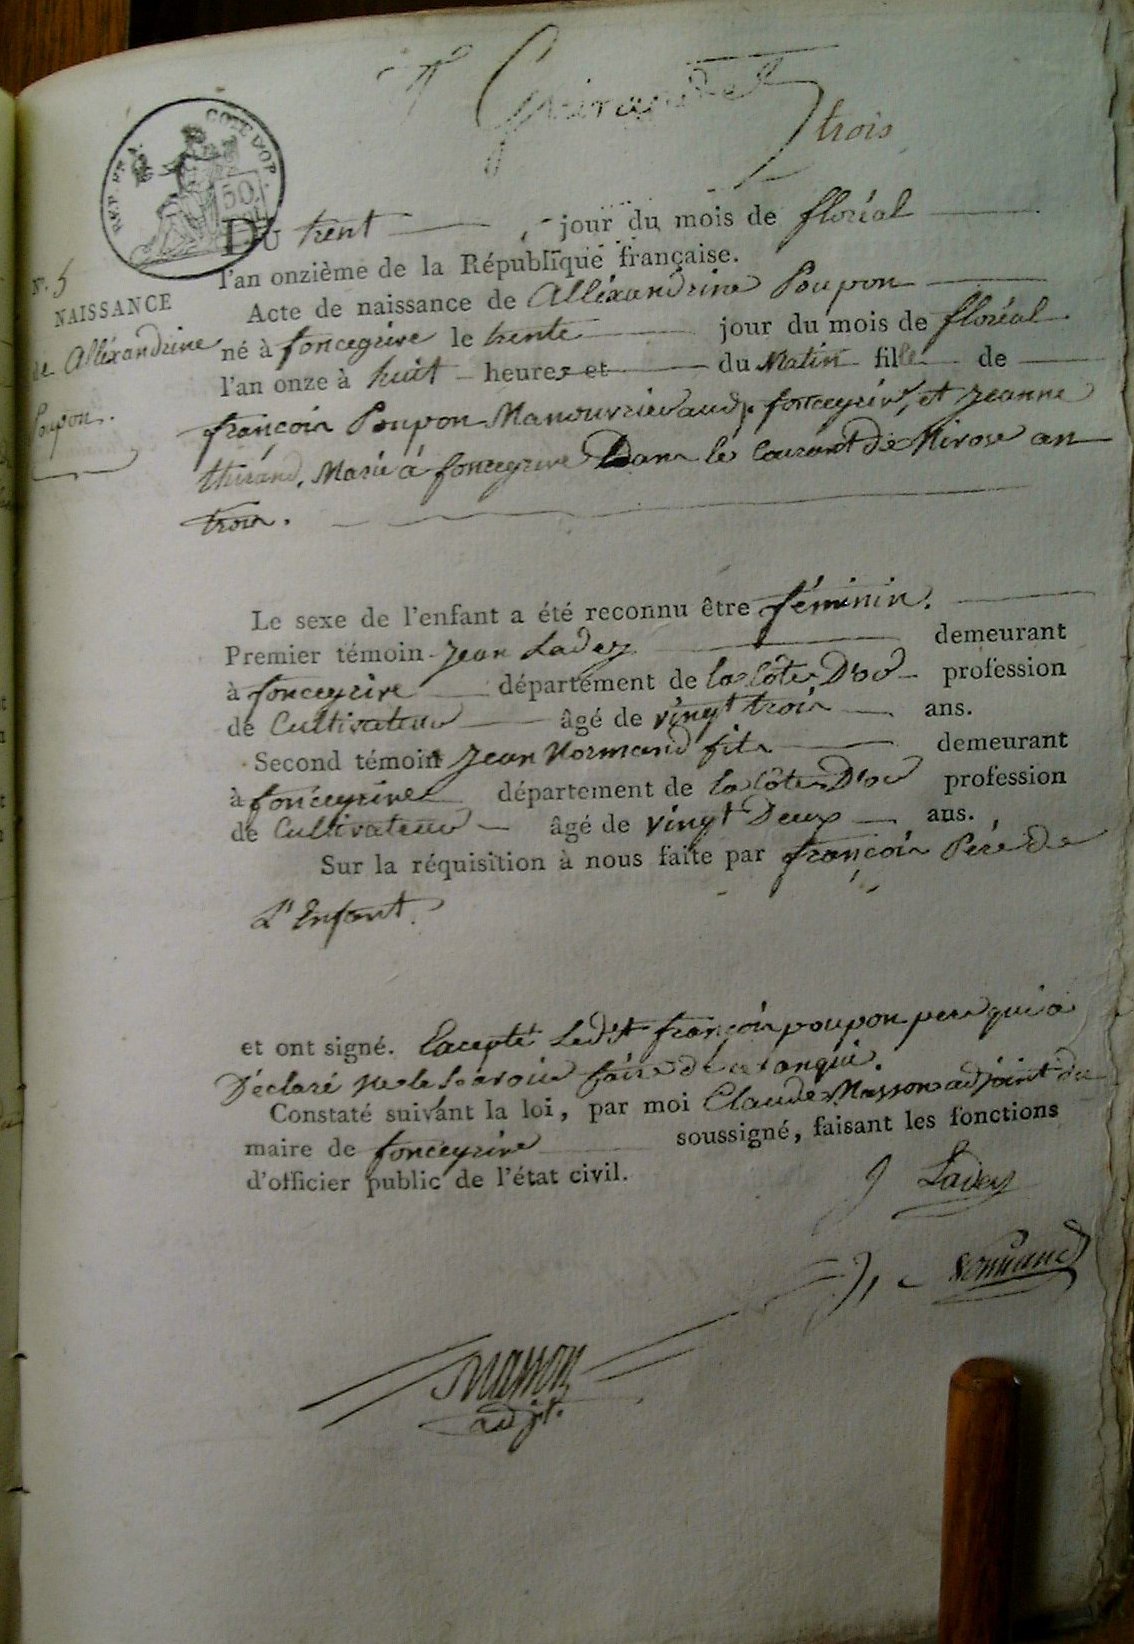 Guiraudet
trois
REP. FRA. COTE D'OR.
50
DU trent jour du mois de floréal
l'an onzième de la République française.
N°. 5
NAISSANCE
de Alléxandrine
Poupon.
Acte de naissance de Alléxandrine Poupon
né à foncegrive le trente jour du mois de floréal
l'an onze à huit heures et du Matin fille de
françois Poupon Manouvrier audt foncegrive, et Jeanne
thirand, Marié á foncegrive Dans le Courant de Nivose an
trois.
Le sexe de l'enfant a été reconnu être féminin.
Premier témoin Jean Ladey demeurant
à foncegrive département de la Côte D'or profession
de Cultivateur âgé de vingt trois ans.
Second témoin Jean Normand fils demeurant
à foncegrive département de la Côte D'or profession
de Cultivateur âgé de vingt Deux ans.
Sur la réquisition à nous faite par françois Pére de
L'Enfant.
et ont signé. Excepté Ledit françois poupon pere qui a
Déclaré ne le Scavoir faire de ce enquis.
Constaté suivant la loi, par moi Claude Masson adjoint du
maire de foncegrive soussigné, faisant les fonctions
d'officier public de l'état civil.
J Ladey
J normand
Masson
adjt.